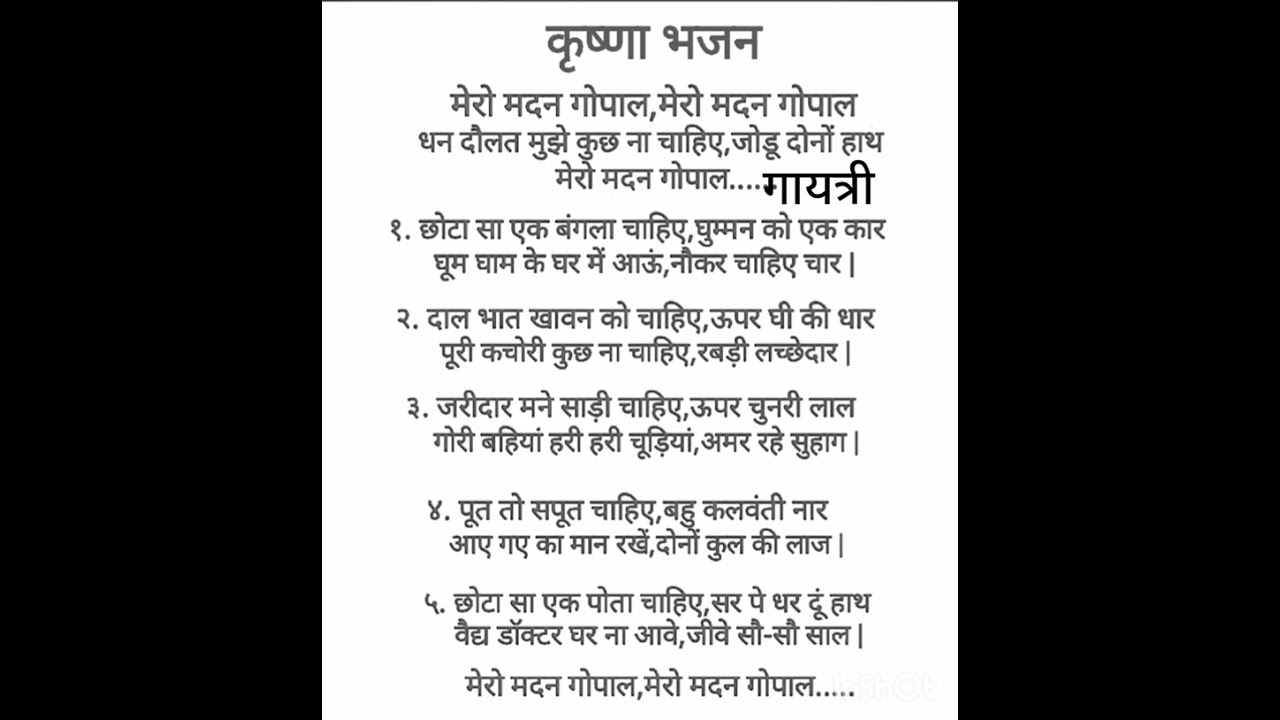 कृष्णा भजन
मेरो मदन गोपाल,मेरो मदन गोपाल
धन दौलत मुझे कुछ ना चाहिए,जोडू दोनों हाथ
मेरो मदन गोपाल......
गायत्री
१. छोटा सा एक बंगला चाहिए,घुम्मन को एक कार
घूम घाम के घर में आऊं,नौकर चाहिए चार |
२. दाल भात खावन को चाहिए,ऊपर घी की धार
पूरी कचोरी कुछ ना चाहिए,रबड़ी लच्छेदार |
३. जरीदार मने साड़ी चाहिए,ऊपर चुनरी लाल
गोरी बहियां हरी हरी चूड़ियां,अमर रहे सुहाग |
४. पूत तो सपूत चाहिए,बहु कलवंती नार
आए गए का मान रखें,दोनों कुल की लाज |
५. छोटा सा एक पोता चाहिए,सर पे धर दूं हाथ
वैद्य डॉक्टर घर ना आवे,जीवे सौ-सौ साल |
मेरो मदन गोपाल,मेरो मदन गोपाल.....
InShOt